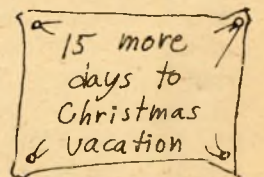 15 more
days to
Christmas
vacation